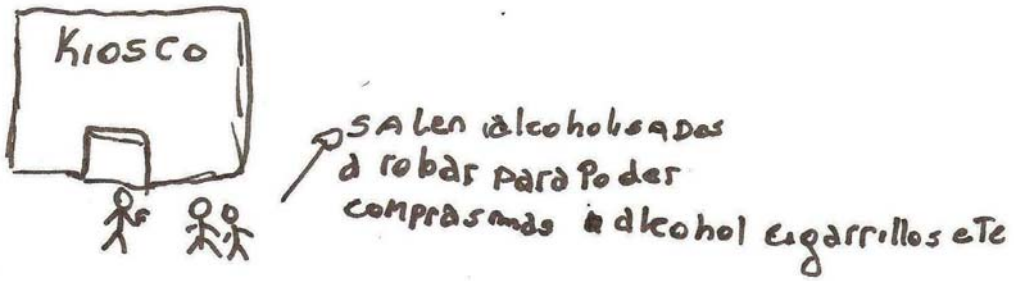 KIOSCO
SALen alcoholisaDas
a robar para Poder
compras mas a alcohol cigarrillos eTc